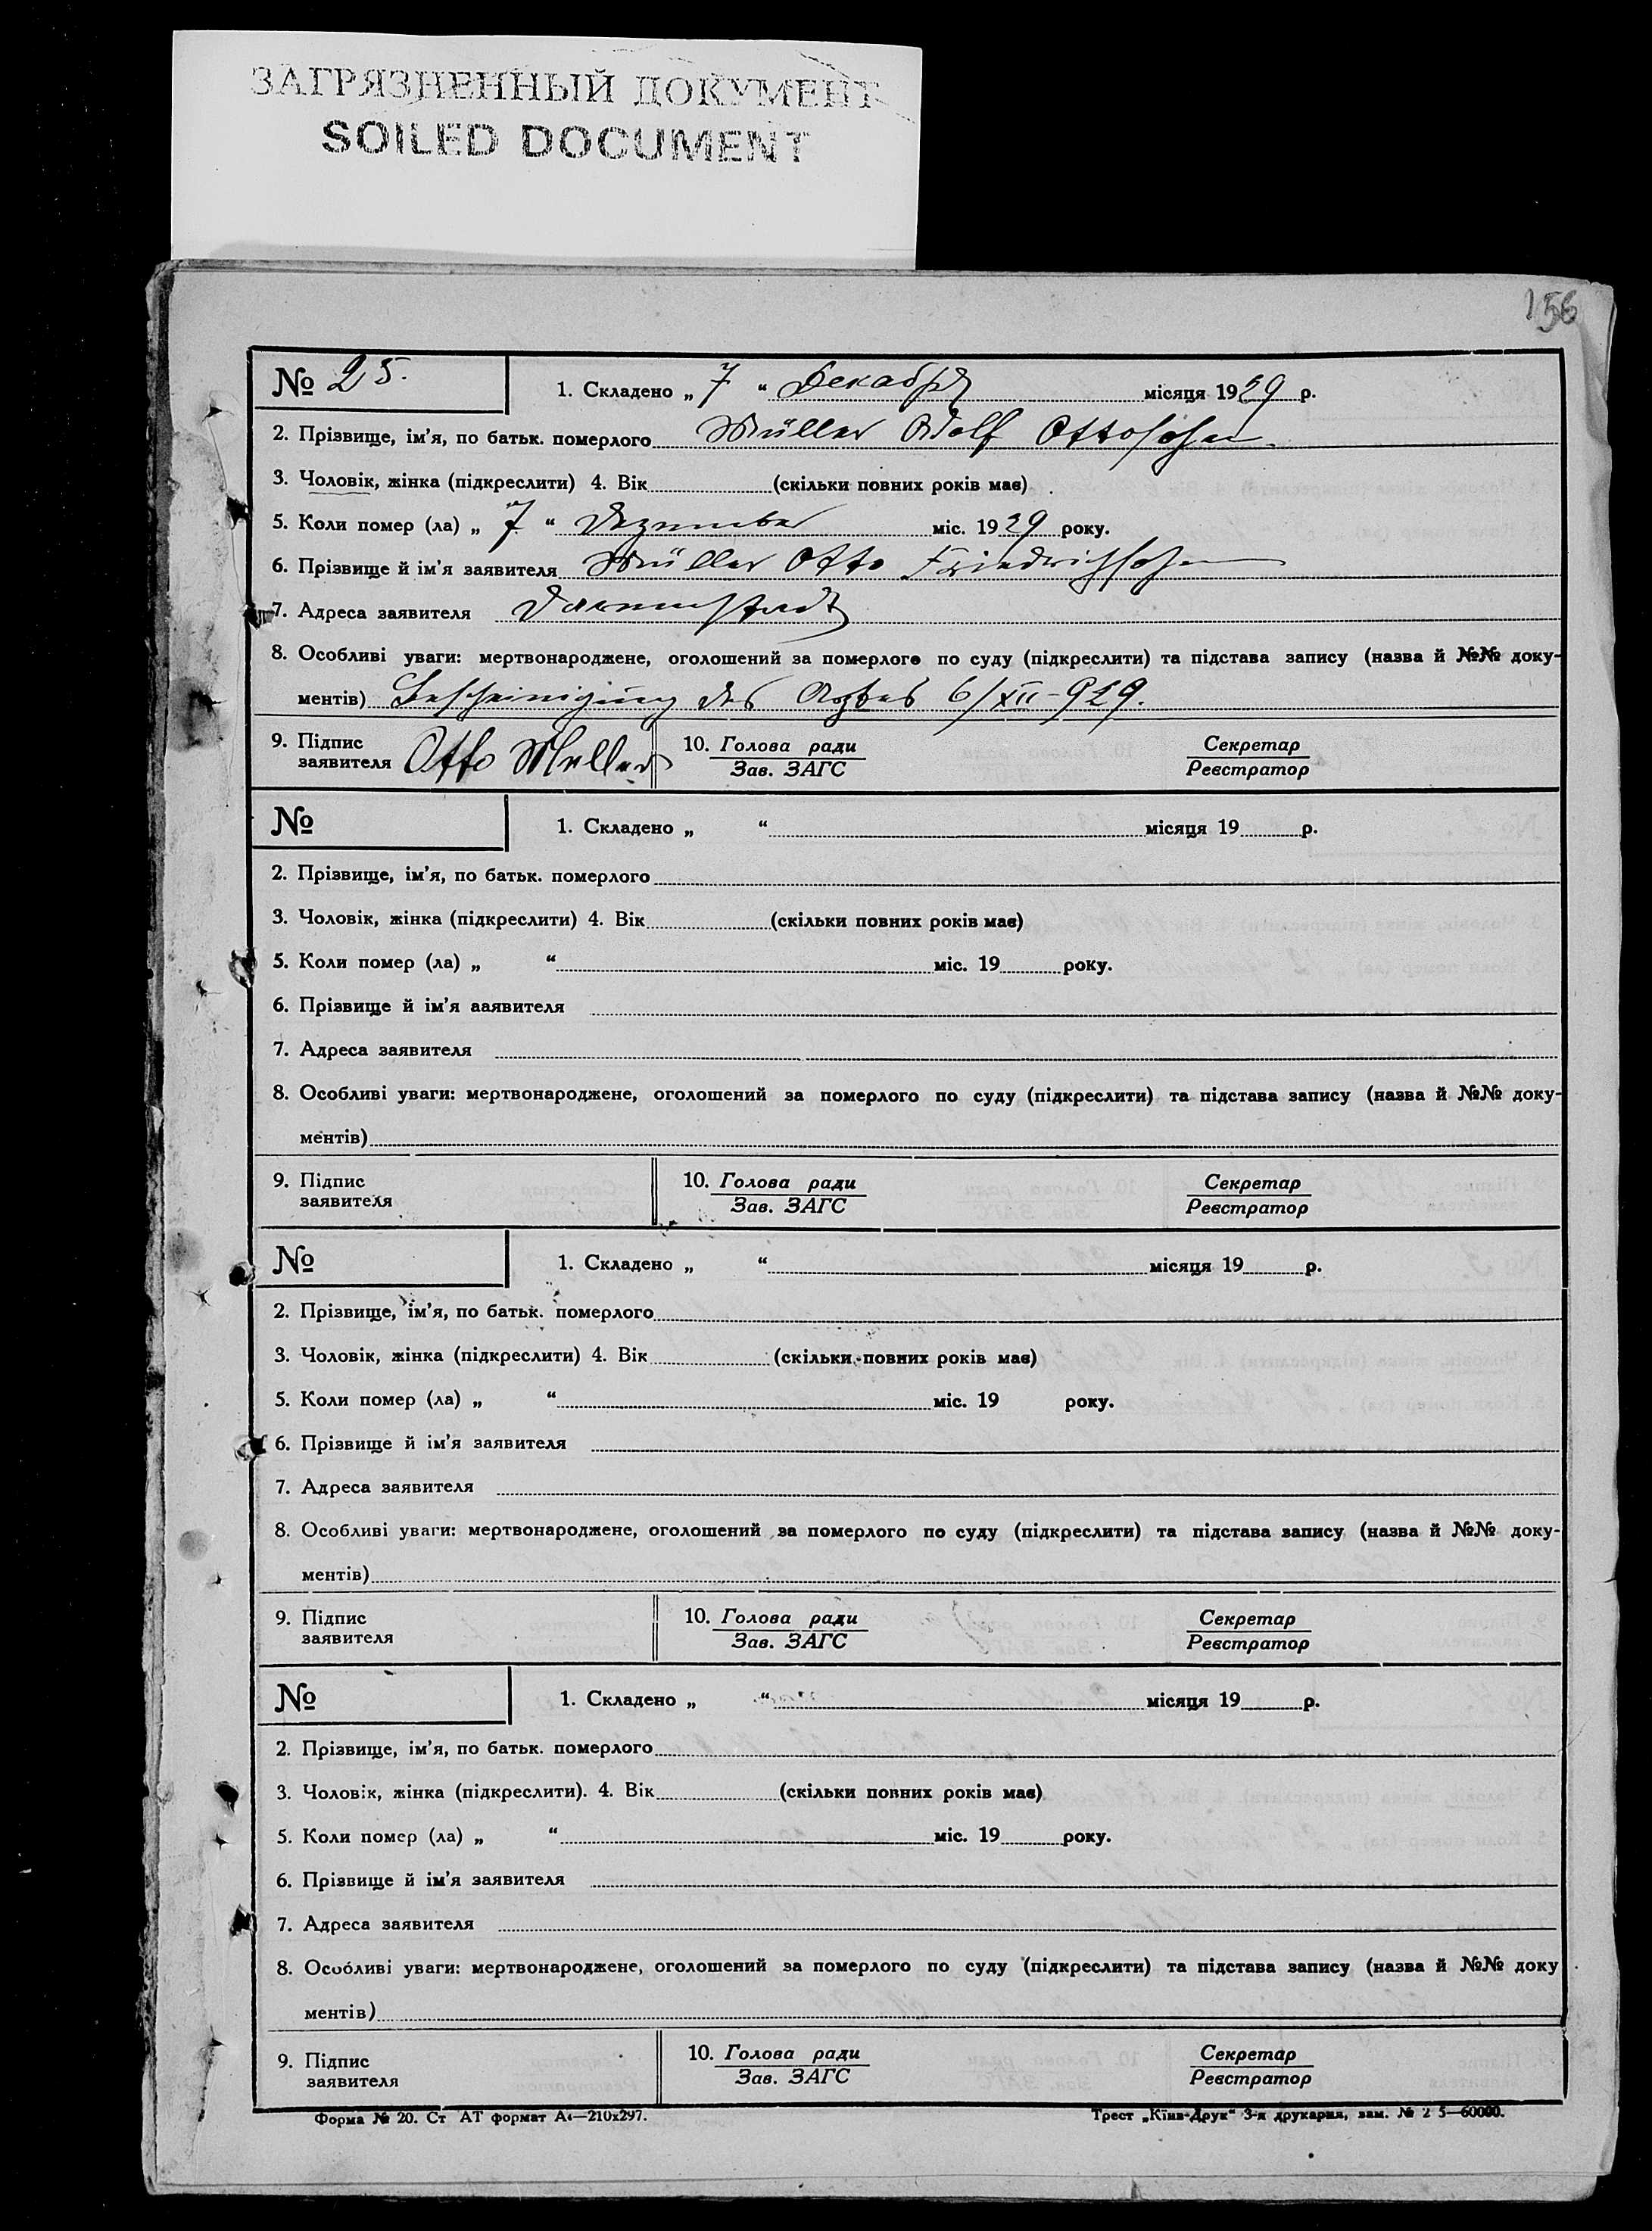 ЗАГРЯЗНЕННЫЙ ДОКУМЕНТ
SOILED DOCUMENT
156
№ 25. 1. Складено „ 7 “ Декабря місяця 1929 р.
2. Прізвище, ім'я, по батьк. померлого Müller Adolf Ottosohn.
3. Чоловік, жінка (підкреслити) 4. Вік (скільки повних років має)
5. Коли помер (ла) „ 7. “ Dezember міс. 1929 року.
6. Прізвище й ім'я заявителя Müller Otto Friedrichsohn
7. Адреса заявителя Darmstadt
8. Особливі уваги: мертвонароджене, оголошений за померлого по суду (підкреслити) та підстава запису (назва й №№ доку-
ментів) Bescheinigung des Arztes 6/XII-929.
9. Підпис заявителя Otto Muller 10. Голова ради Секретар
Зав. ЗАГС Реєстратор
№ 1. Складено „ “ місяця 19 р.
2. Прізвище, ім'я, по батьк. померлого
3. Чоловік, жінка (підкреслити) 4. Вік (скільки повних років має)
5. Коли помер (ла) „ “ міс. 19 року.
6. Прізвище й ім'яааявителя
7. Адреса заявителя
8. Особливі уваги: мертвонароджене, оголошений за померлого по суду (підкреслити) та підстава запису (назва й №№ доку-
ментів)
9. Підпис заявителя 10. Голова ради Секретар
Зав. ЗАГС Реєстратор
№ 1. Складено „ “ місяця 19 р.
2. Прізвище, ім'я, по батьк. померлого
3. Чоловік, жінка (підкреслити) 4. Вік (скільки повних років має)
5. Коли помер (ла) „ “ міс. 19 року.
6. Прізвище й ім'я заявителя
7. Адреса заявителя
8. Особливі уваги: мертвонароджене, оголошений за померлого по суду (підкреслити) та підстава запису (назва й №№ доку-
ментів)
9. Підпис заявителя 10. Голова ради Секретар
Зав. ЗАГС Реєстратор
№ 1. Складено „ “ місяця 19 р.
2. Прізвище, ім'я, по батьк. померлого
3. Чоловік, жінка (підкреслити). 4. Вік (скільки повних років має)
5. Коли помер (ла) „ “ міс. 19 року.
6. Прізвище й ім'я заявителя
7. Адреса заявителя
8. Особливі уваги: мертвонароджене, оголошений за померлого по суду (підкреслити) та підстава запису (назва й №№ доку
ментів)
9. Підпис заявителя 10. Голова ради Секретар
Зав. ЗАГС Реєстратор
Форма № 20. Ст АТ формат А4—210x297. Трест „Київ-Друк“ 3-я друкарня, зам. № 2 5—60000.